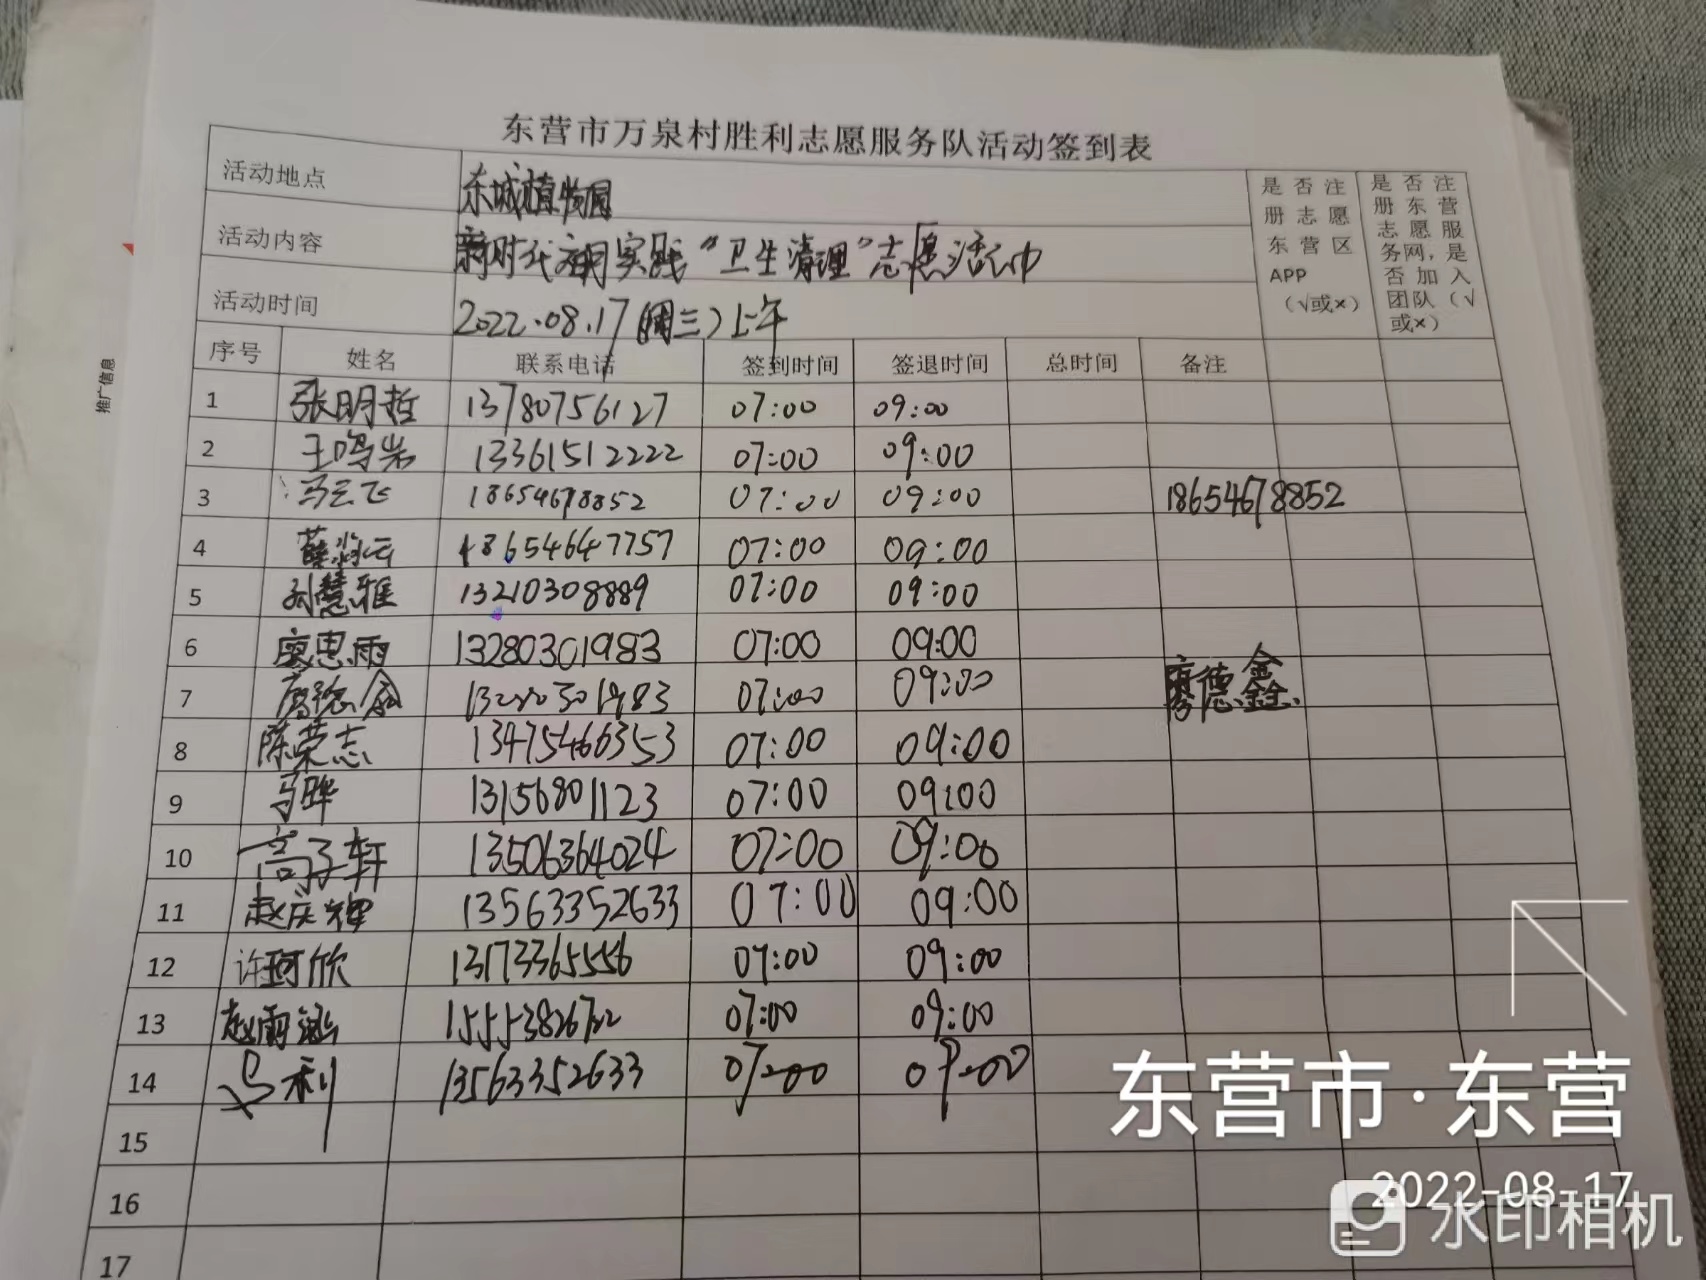 东营市万泉村胜利志愿服务队活动签到表
活动地点 东城植物园
活动内容 新时代文明实践“卫生清理”志愿活动
活动时间 2022.08.17(周三)上午
是否注册志愿东营区APP（√或×）
是否注册东营志愿服务网，是否加入团队（√或×）
序号 姓名 联系电话 签到时间 签退时间 总时间 备注
1 张明哲 13780756127 07:00 09:00
2 王鸣岩 13361512222 07:00 09:00
3 马云飞 18654678852 07:00 09:00 18654678852
4 薛 18654647757 07:00 09:00
5 刘慧雅 13210308889 07:00 09:00
6 廖思雨 13280301983 07:00 09:00
7 廖德鑫 13280301983 07:00 09:00 廖德鑫
8 陈荣志 13475466353 07:00 09:00
9 马骅 13156801123 07:00 09:00
10 高子轩 13506364024 07:00 09:00
11 赵庆辉 13563352633 07:00 09:00
12 许珂欣 13173365556 07:00 09:00
13 赵雨涵 07:00 09:00
14 马利 13563352633 07:00 09:00
15
16
17
推广信息
东营市·东营
2022-08-17
水印相机